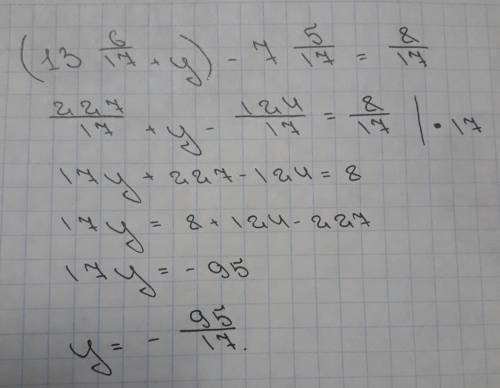 (13 6/17 + y) - 7 5/17 = 8/17
227/17 + y - 124/17 = 8/17 | • 17
17y + 227 - 124 = 8
17y = 8 + 124 - 227
17y = - 95
y = - 95/17.